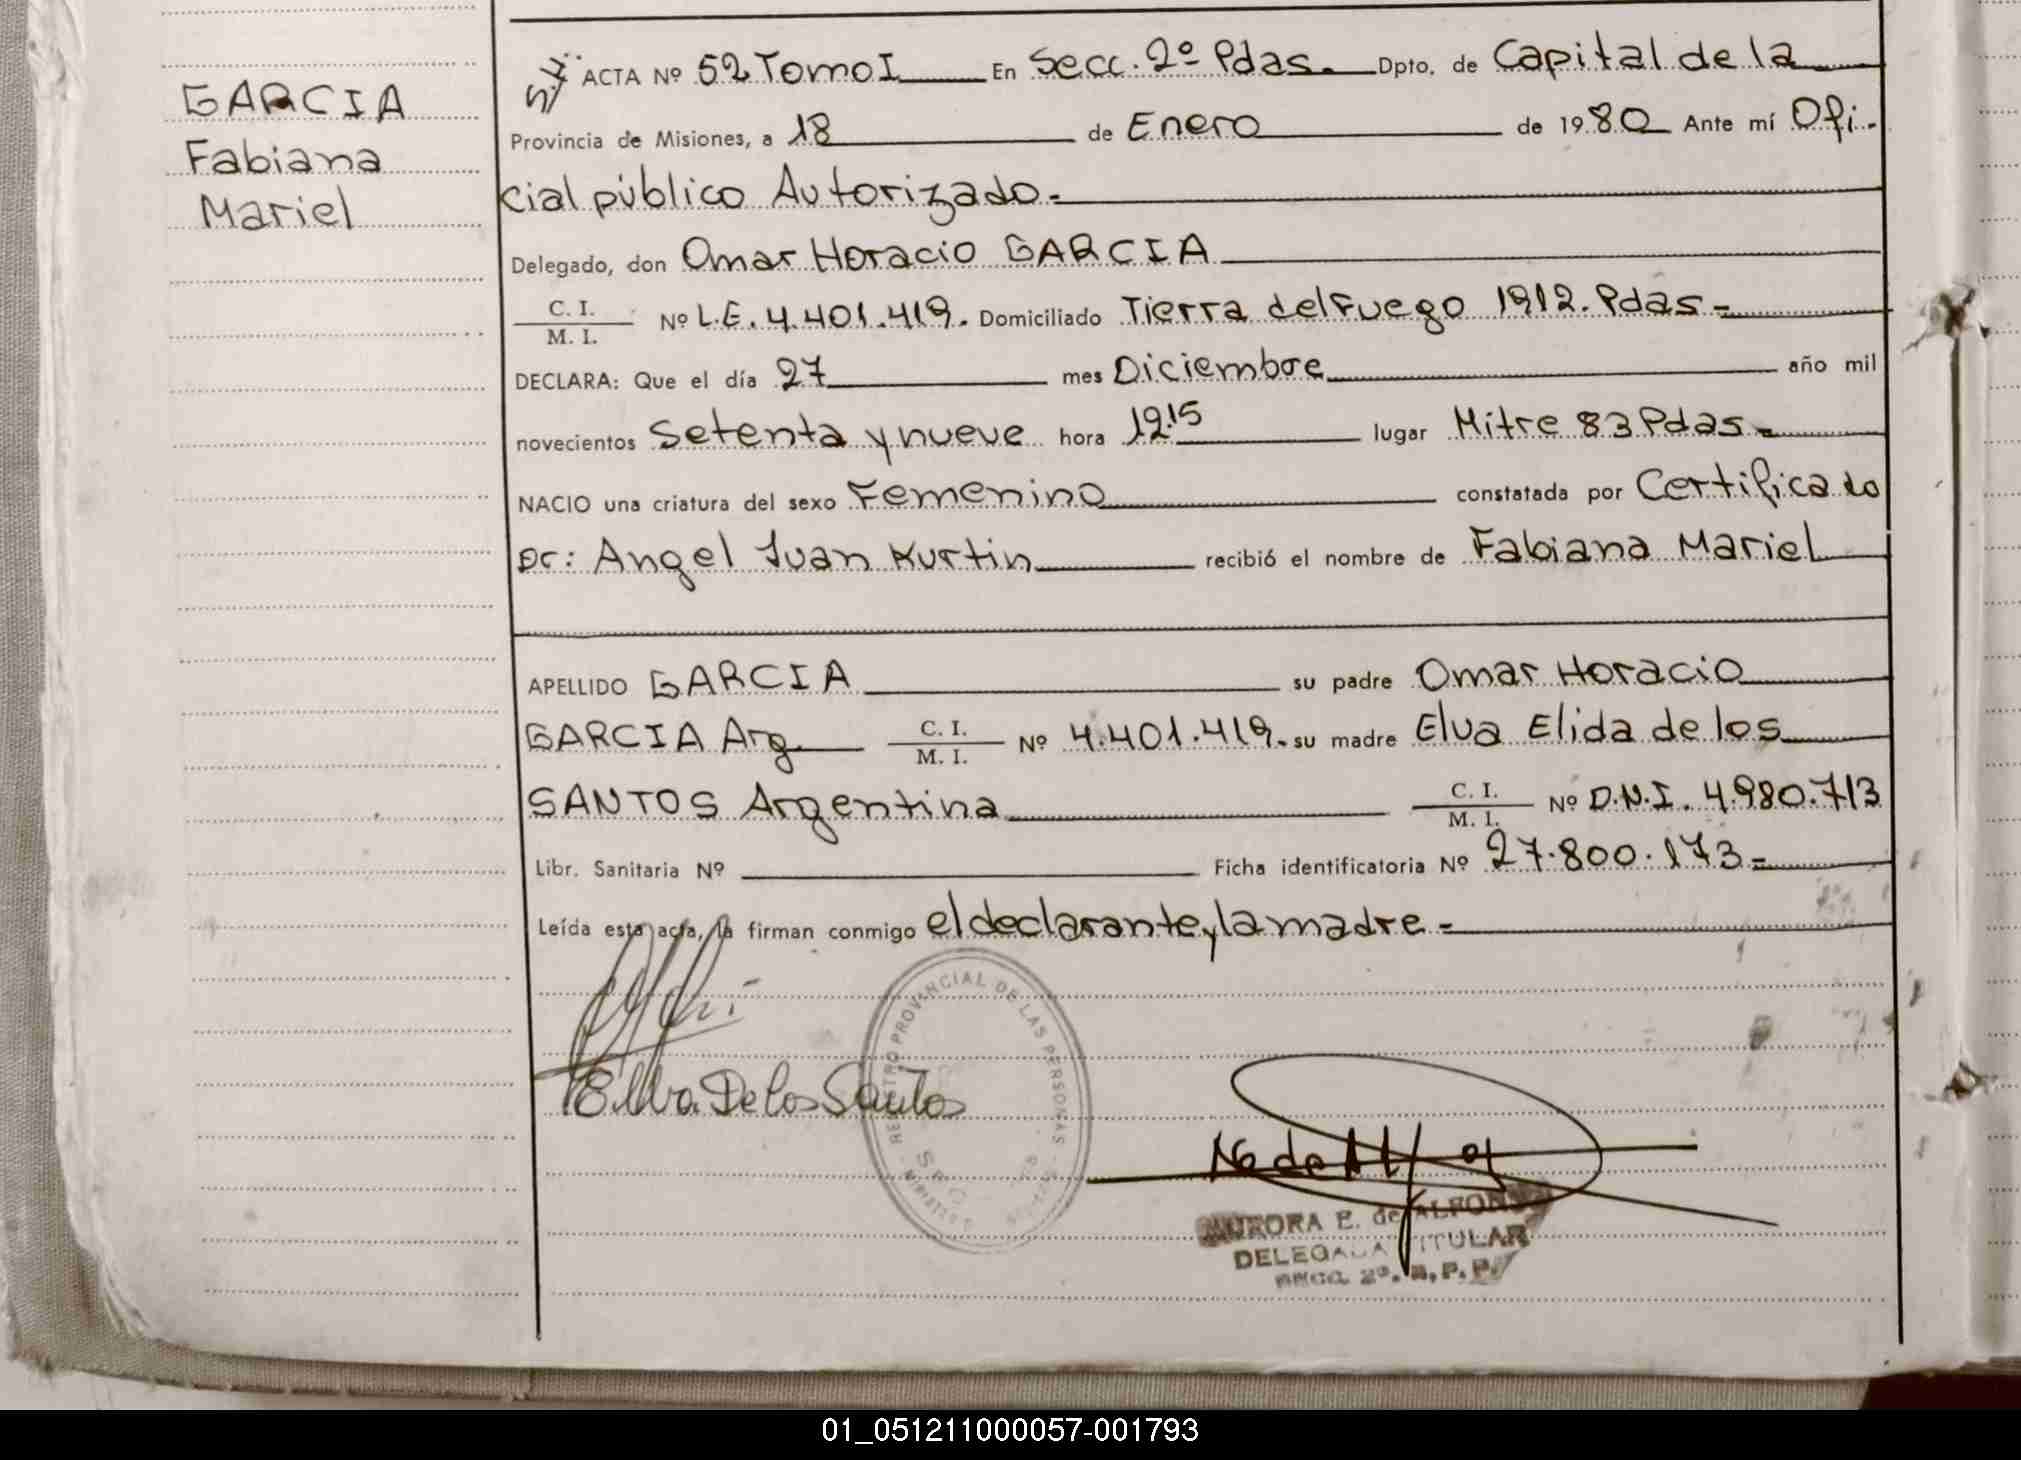 GARCIA
Fabiana
Mariel
ACTA Nº 52 Tomo I En Secc. 2º Pdas. Dpto. de Capital de la
Provincia de Misiones, a 18 de Enero de 1980 Ante mí Ofi-
cial público Autorizado.
Delegado, don Omar Horacio GARCIA
C. I.
M. I.
Nº L.E. 4.401.419. Domiciliado Tierra del Fuego 1912. Pdas-
DECLARA: Que el día 27 mes Diciembre año mil
novecientos Setenta y nueve hora 12.15 lugar Mitre 83 Pdas-
NACIO una criatura del sexo Femenino constatada por Certificado
Dr: Angel Juan Kurtin recibió el nombre de Fabiana Mariel
APELLIDO GARCIA su padre Omar Horacio
GARCIA Arg C. I. / M. I. Nº 4.401.419. su madre Elva Elida de los
SANTOS Argentina C. I. / M. I. Nº D.N.I. 4.980.713
Libr. Sanitaria Nº Ficha identificatoria Nº 27.800.173=
Leída esta acta, la firman conmigo el declarante y la madre=
Elva De los Santos
REGISTRO PROVINCIAL DE LAS PERSONAS
AURORA E. de ALFONSO
DELEGADA TITULAR
SECC. 2º. R.P.P.
01_051211000057-001793